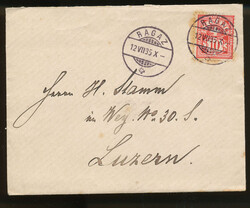 RAGAZ
12.VII.95.X-
RAGAZ
12.VII.95.X-
10
Herrn H. Stamm
im Weg. No. 30. S.
Luzern.